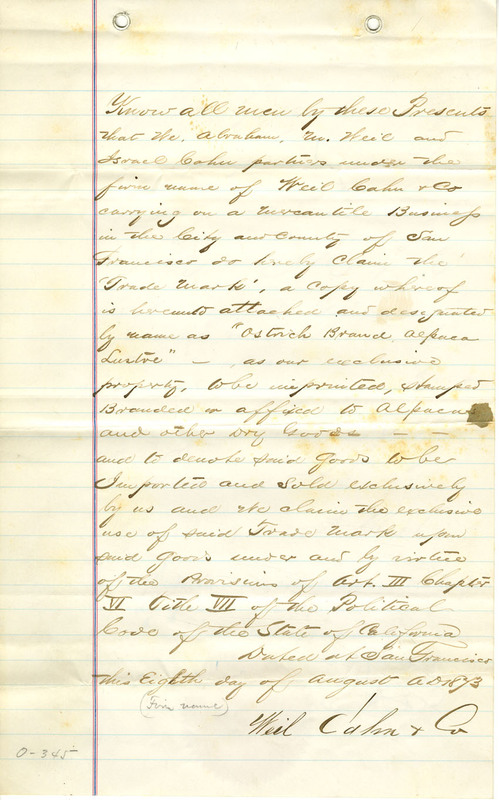 Know all men by these Presents
that We, Abraham, M. Weil and
Israel Cahn partners under the
firm name of Weil Cahn & Co
carrying on a Mercantile Business
in the City and County of San
Francisco do hereby claim the
"Trade Mark", a copy whereof
is hereunto attached and designated
by name as "Ostrich Brand, Alpaca
Lustre" — as our exclusive
property, to be imprinted, stamped
Branded or affixed to Alpacas
and other Dry Goods — —
and to denote said goods to be
Imported and Sold exclusively
by us and We claim the exclusive
use of said Trade Mark upon
said goods under and by virtue
of the Provisions of Art. III Chapter
VI Title VII of the Political
Code of the State of California
Dated at San Francisco
this Eighth day of August AD 1873
(Firm name)
Weil Cahn & Co
0-345